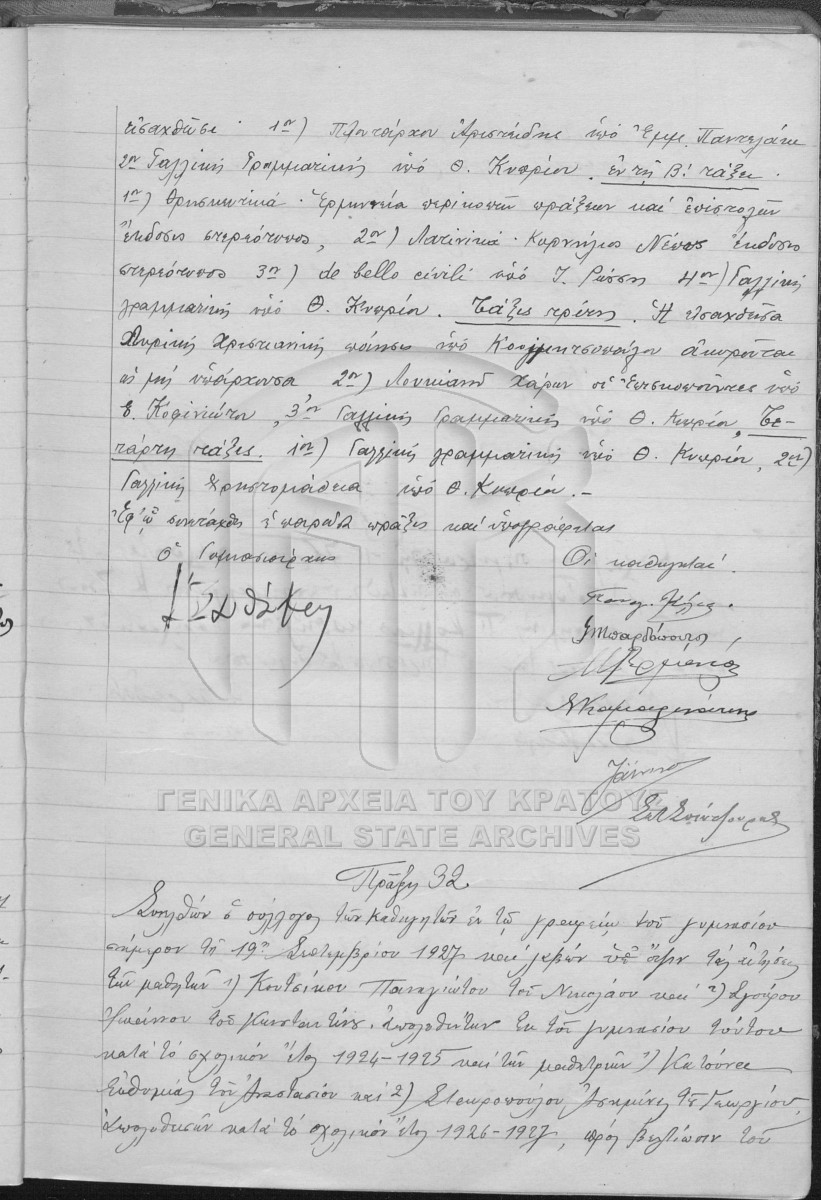 εἰσαχθῶσι · 1ον) Πλουτάρχου Ἀριστείδης ὑπὸ Ἐμμ. Παντελάκη
2ον Γαλλικὴ Γραμματικὴ ὑπὸ Θ. Κυπρίου. ἐν τῇ Β! τάξει ·
1ον) Θρησκευτικά · Ἑρμηνεία περικοπῶν πράξεων καὶ ἐπιστολῶν
ἔκδοσις στερεότυπος, 2ον) Λατινικά · Κορνήλιος Νέπως ἔκδοσις
στερεότυπος 3ον) de bello civili ὑπὸ Ι. Ρώσση 4ον) Γαλλικὴ
γραμματικὴ ὑπὸ Θ. Κυπρίου. Τάξις τρίτη. Ἡ εἰσαχθεῖσα
Λυρικὴ Χριστιανικὴ ποίησις ὑπὸ ἀκυροῦται
ὡς μὴ ὑπάρχουσα 2ον) Λουκιανοῦ Χάρων οἱ Ἐπισκοποῦντες ὑπὸ
3ον Γαλλικὴ Γραμματικὴ ὑπὸ Θ. Κυπρίου, Τε-
τάρτη τάξις. 1ον) Γαλλικὴ γραμματικὴ ὑπὸ Θ. Κυπρίου, 2ον)
Γαλλικὴ Χρηστομάθεια ὑπὸ Θ. Κυπρίου. –
Ἐφ' ᾧ συνετάχθη ἡ παροῦσα πρᾶξις καὶ ὑπογράφεται
Ὁ Γυμνασιάρχης
Οἱ καθηγηταί.
ΓΕΝΙΚΑ ΑΡΧΕΙΑ ΤΟΥ ΚΡΑΤΟΥΣ
GENERAL STATE ARCHIVES
Πρᾶξις 32
Συνελθὼν ὁ σύλλογος τῶν καθηγητῶν ἐν τῷ γραφείῳ τοῦ γυμνασίου
σήμερον τῇ 19ῃ Σεπτεμβρίου 1927 καὶ λαβὼν ὑπ' ὄψιν τὰς αἰτήσεις
τῶν μαθητῶν 1) Κουτσίκου Παναγιώτου τοῦ Νικολάου καὶ 2) Σγούρου
Ἰωάννου τοῦ Κωνσταντίνου, ἀπολυθέντων ἐκ τοῦ γυμνασίου τούτου
κατὰ τὸ σχολικὸν ἔτος 1924-1925 καὶ τῶν μαθητριῶν 1) Κατσίνα
Εὐθυμίας τοῦ Ἀναστασίου καὶ 2) Σταυροπούλου Ἀσημίνας τοῦ Γεωργίου,
ἀπολυθεισῶν κατὰ τὸ σχολικὸν ἔτος 1926-1927, πρὸς βελτίωσιν τοῦ